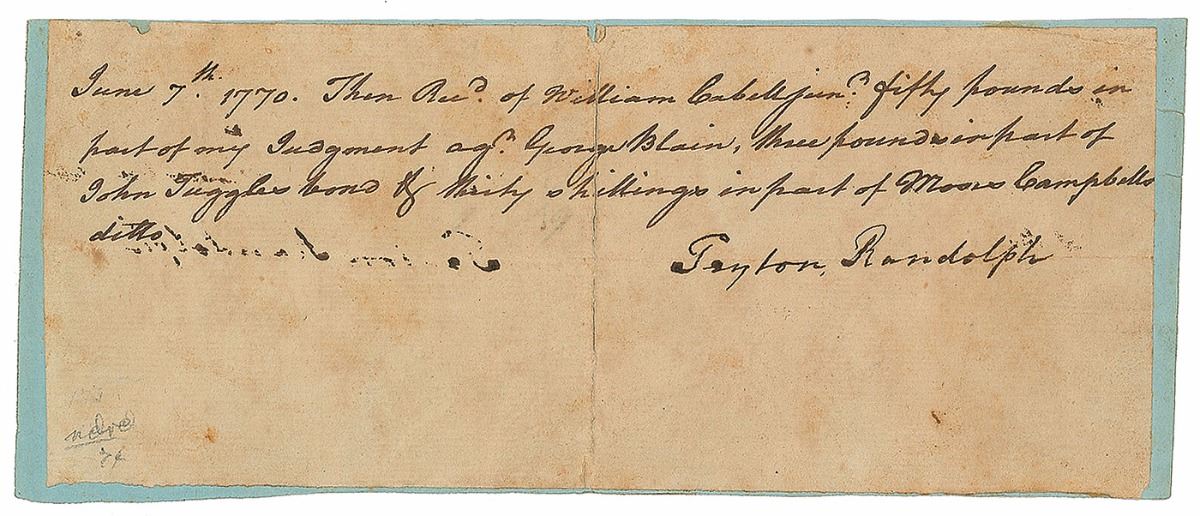 June 7th. 1770. Then Recd. of William Cabell junr. fifty pounds in
part of my Judgment agt. George Blain, three pounds in part of
John Tuggles bond & thirty shillings in part of Moses Campbells
ditto
Peyton, Randolph